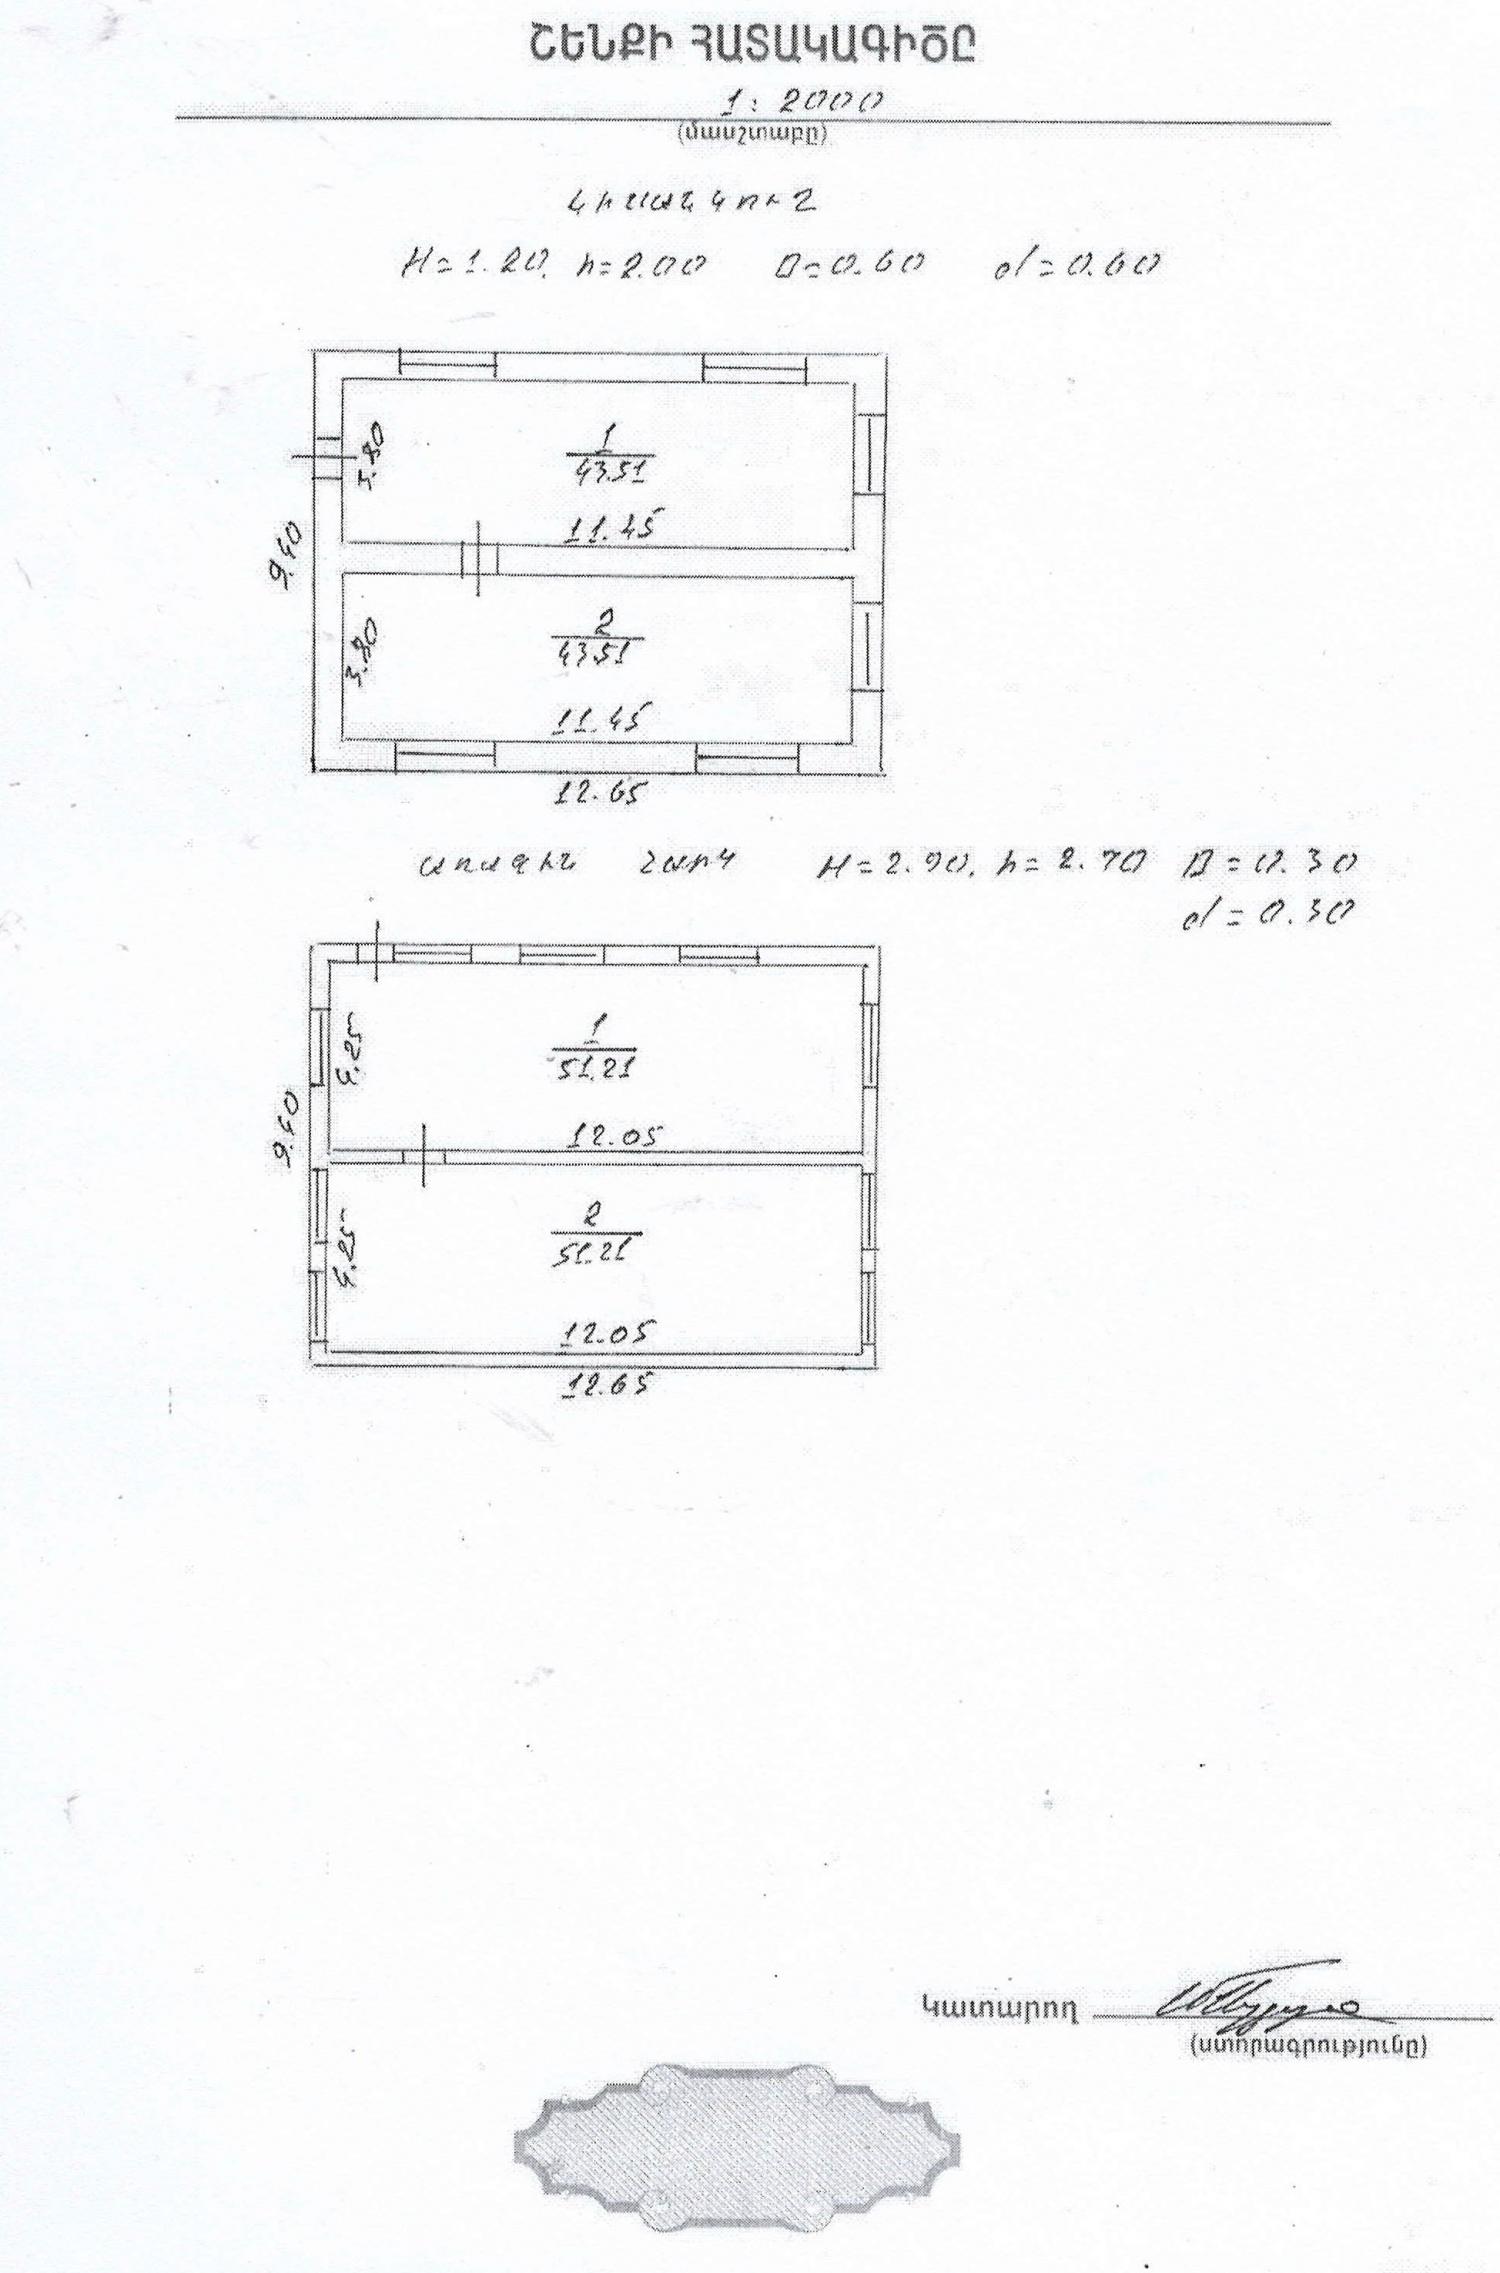 ՇԵՆՔԻ ՀԱՏԱԿԱԳԻԾԸ
1: 2000
(մասշտաբը)
ԿԻՍԱՆԿՈՒՂ
H=1.20. h=2.00 D=0.60 d=0.60
3.80
1
43.51
11.45
9.40
3.80
2
43.51
11.45
12.65
առաջին հարկ H=2.90. h=2.70 D=0.30
d=0.30
4.25
1
51.21
12.05
9.40
4.25
2
51.21
12.05
12.65
Կատարող
(ստորագրությունը)